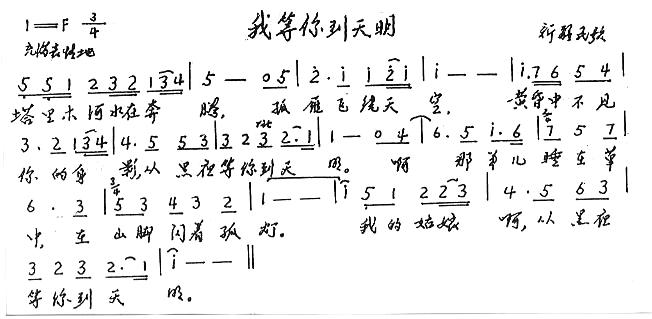 我等你到天明
1=F 3/4
新疆民歌
充满表情地
5 5 1 2 3 2 1 3 4 | 5 — 0 5 | 2 · i i 2 i | i — — | i . 7 6 5 4 |
塔里木河水在奔 腾, 孤雁飞绕天 空, 黄昏中不见
3 . 2 1 3 4 | 4 . 5 5 3 | 3 2 3 2 . 1 | 1 — 0 4 | 6 . 5 i . 6 | 7 5 7 |
你 的身 影,从 黑夜等你到天 明。 啊 那 羊儿 睡在草
6 . 3 | 3/4 5 3 4 3 2 | 1 — — | i 5 1 2 2 3 | 4 . 5 6 3 |
中, 在 山脚闪着孤 灯。 我的姑娘 啊,从黑夜
3 2 3 2 . 1 | i — — ‖
等你到天 明。